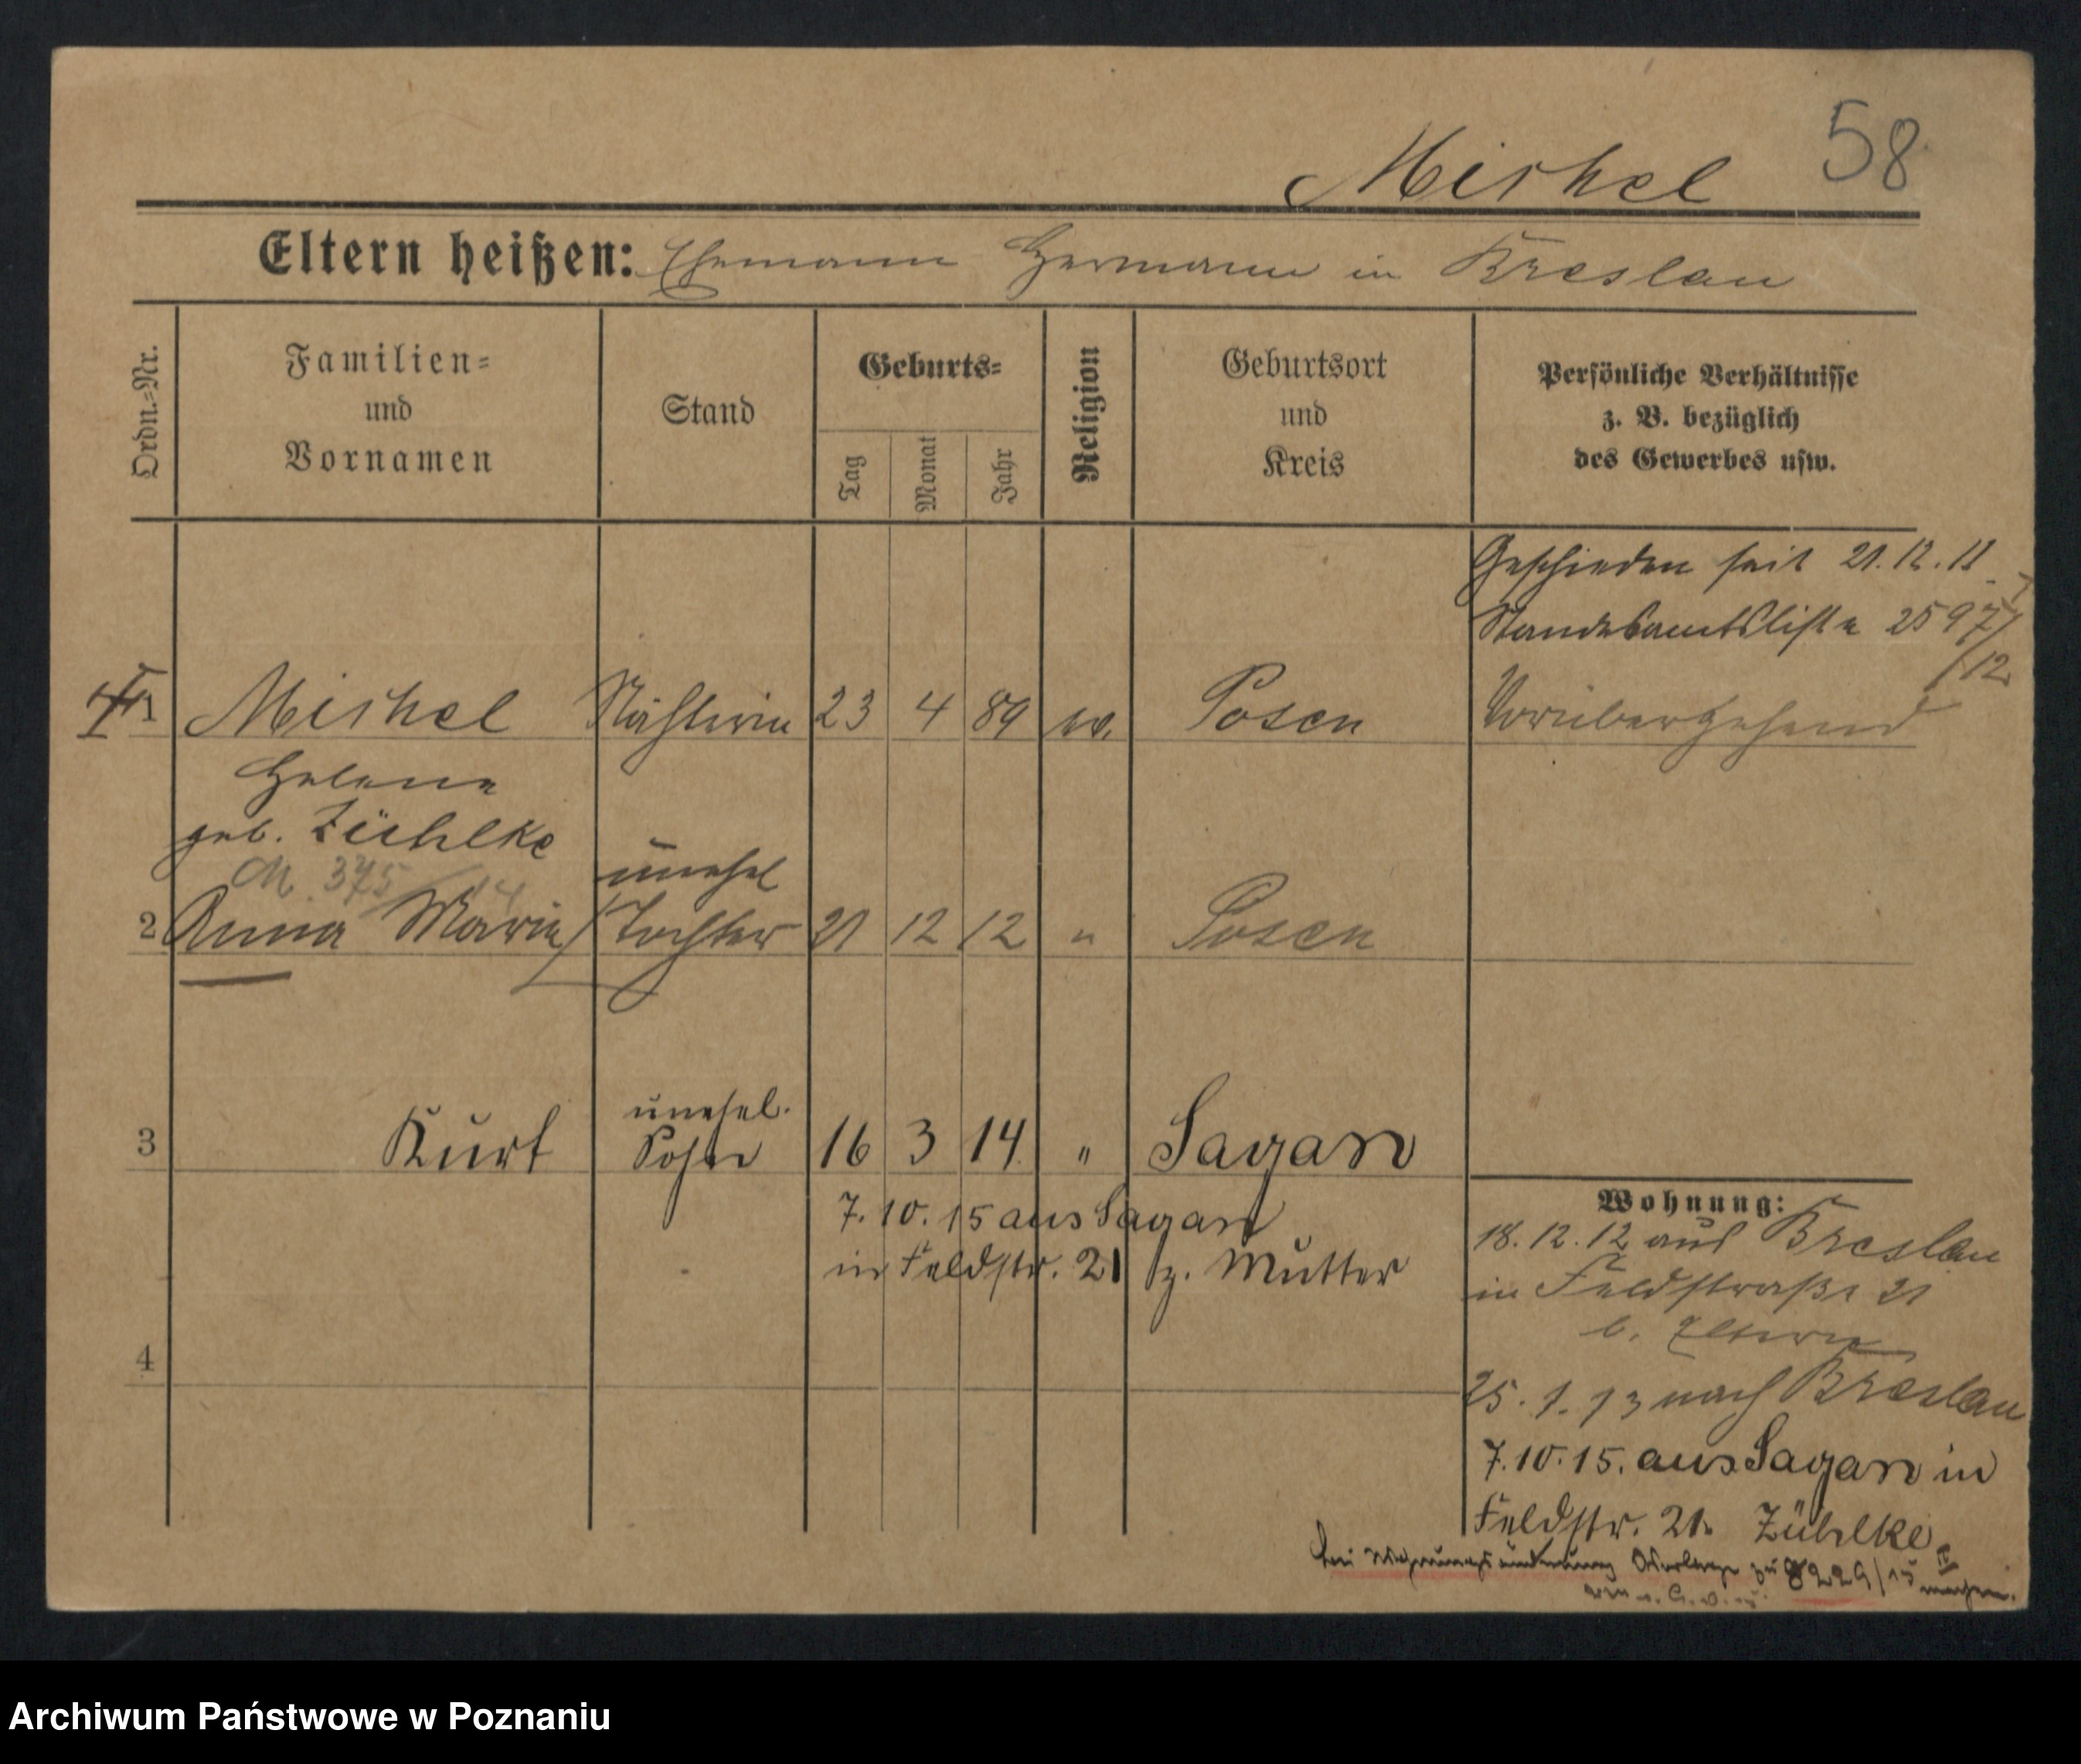 58
Mishel
Eltern heißen: Ehemann Hermann in Breslau
Ordn.-Nr.
Familien-
und
Vornamen
Stand
Geburts-
Tag
Monat
Jahr
Religion
Geburtsort
und
Kreis
Persönliche Verhältnisse
z. B. bezüglich
des Gewerbes usw.
Geschieden seit 21.12.11
Standesamtsliste 2597/
/12
1 Mishel Nähterin 23 4 89 ev. Posen Vorübergehend
Helene
geb. Zühlke
M. 375/14
unehel
2 Anna Marie Tochter 21 12 12 " Posen
unehel.
3 Kurt Sohn 16 3 14. " Sagan
7.10.15 aus Sagan
in Feldstr. 21 z. Mutter
4
Wohnung:
18.12.12 aus Breslau
in Feldstraße 21
b. Eltern
25.1.13 nach Breslau
7.10.15. aus Sagan in
Feldstr. 21. Zühlke
bei zu 8229/15 machen.
Archiwum Państwowe w Poznaniu